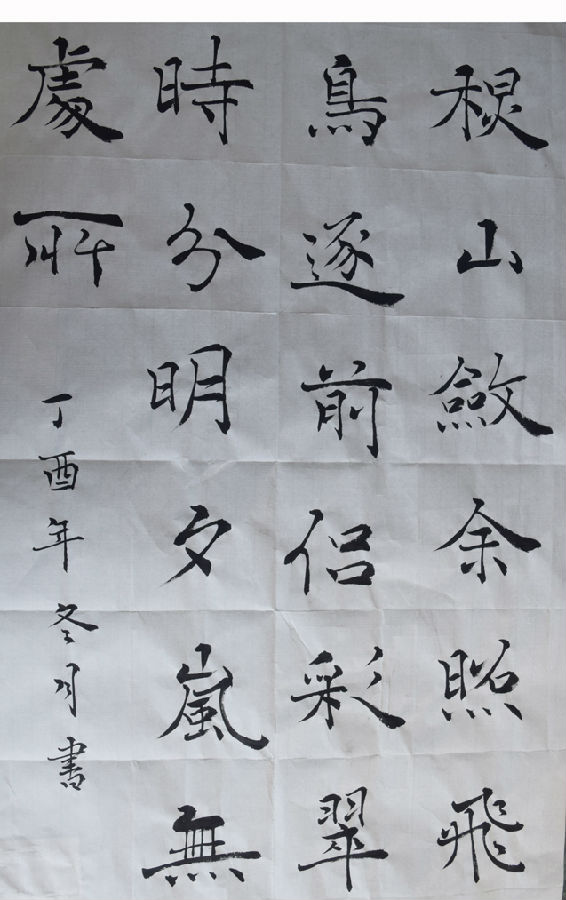 秋山斂余照飛
鳥遂前侣彩翠
時分明夕嵐無
處所
丁酉年冬月書